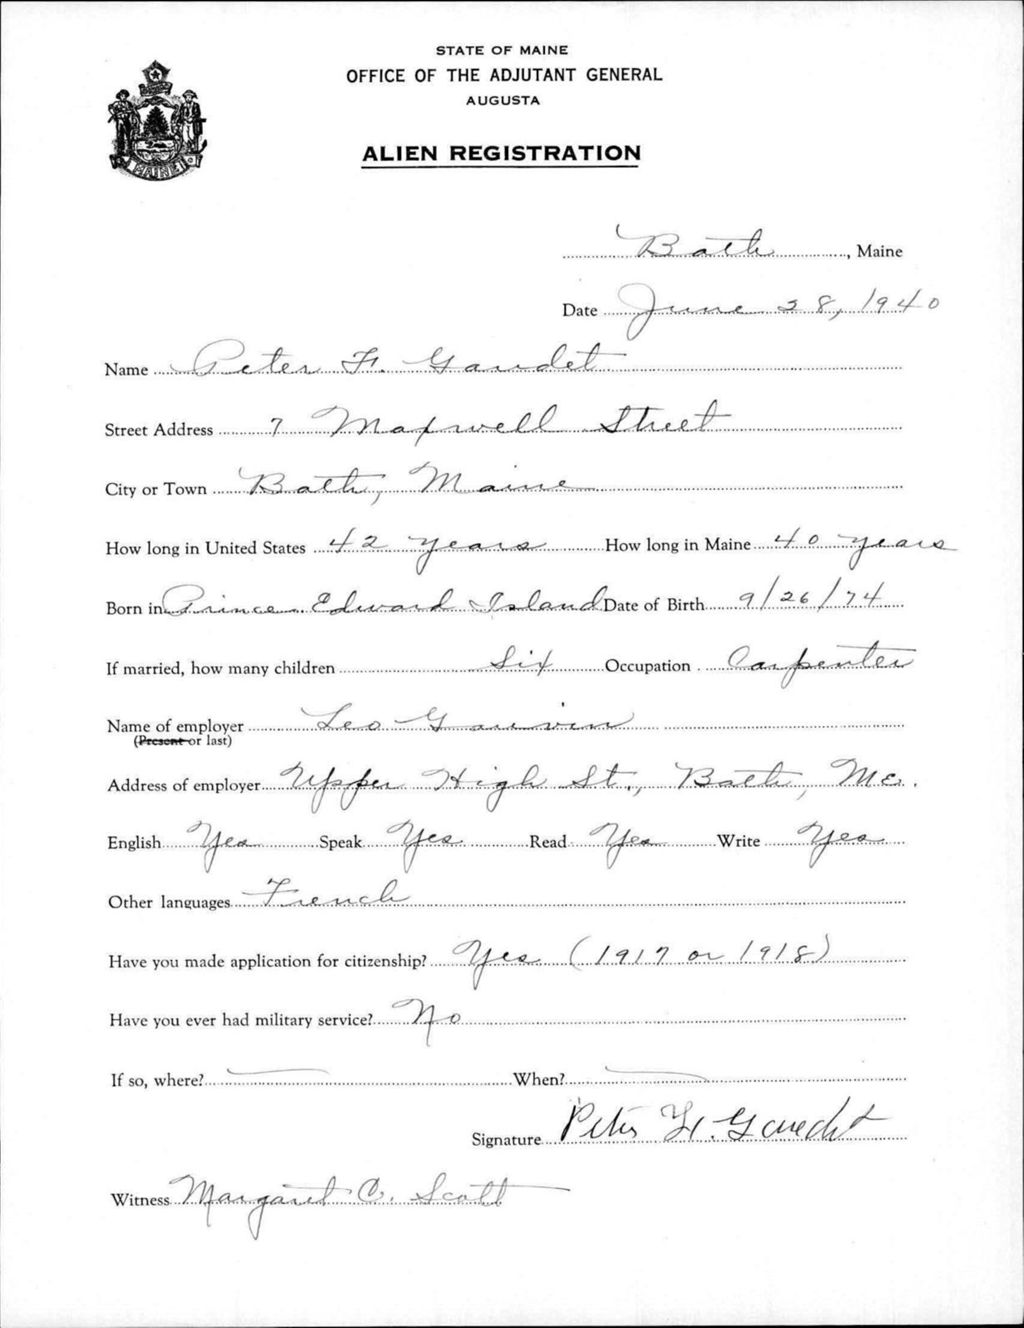 STATE OF MAINE
OFFICE OF THE ADJUTANT GENERAL
AUGUSTA
ALIEN REGISTRATION
MAINE
Bath, Maine
Date June 28, 1940
Name Peter F. Gaudet
Street Address 7 Maxwell Street
City or Town Bath, Maine
How long in United States 42 years How long in Maine 40 years
Born in Prince Edward Island Date of Birth 9/26/74
If married, how many children Six Occupation Carpenter
Name of employer Leo Gauvin
(Present or last)
Address of employer Upper High St., Bath, Me.
English Yes Speak Yes Read Yes Write Yes
Other languages French
Have you made application for citizenship? Yes (1917 or 1918)
Have you ever had military service? No
If so, where? — When? —
Signature Peter F. Gaudet
Witness Margaret C. Scott